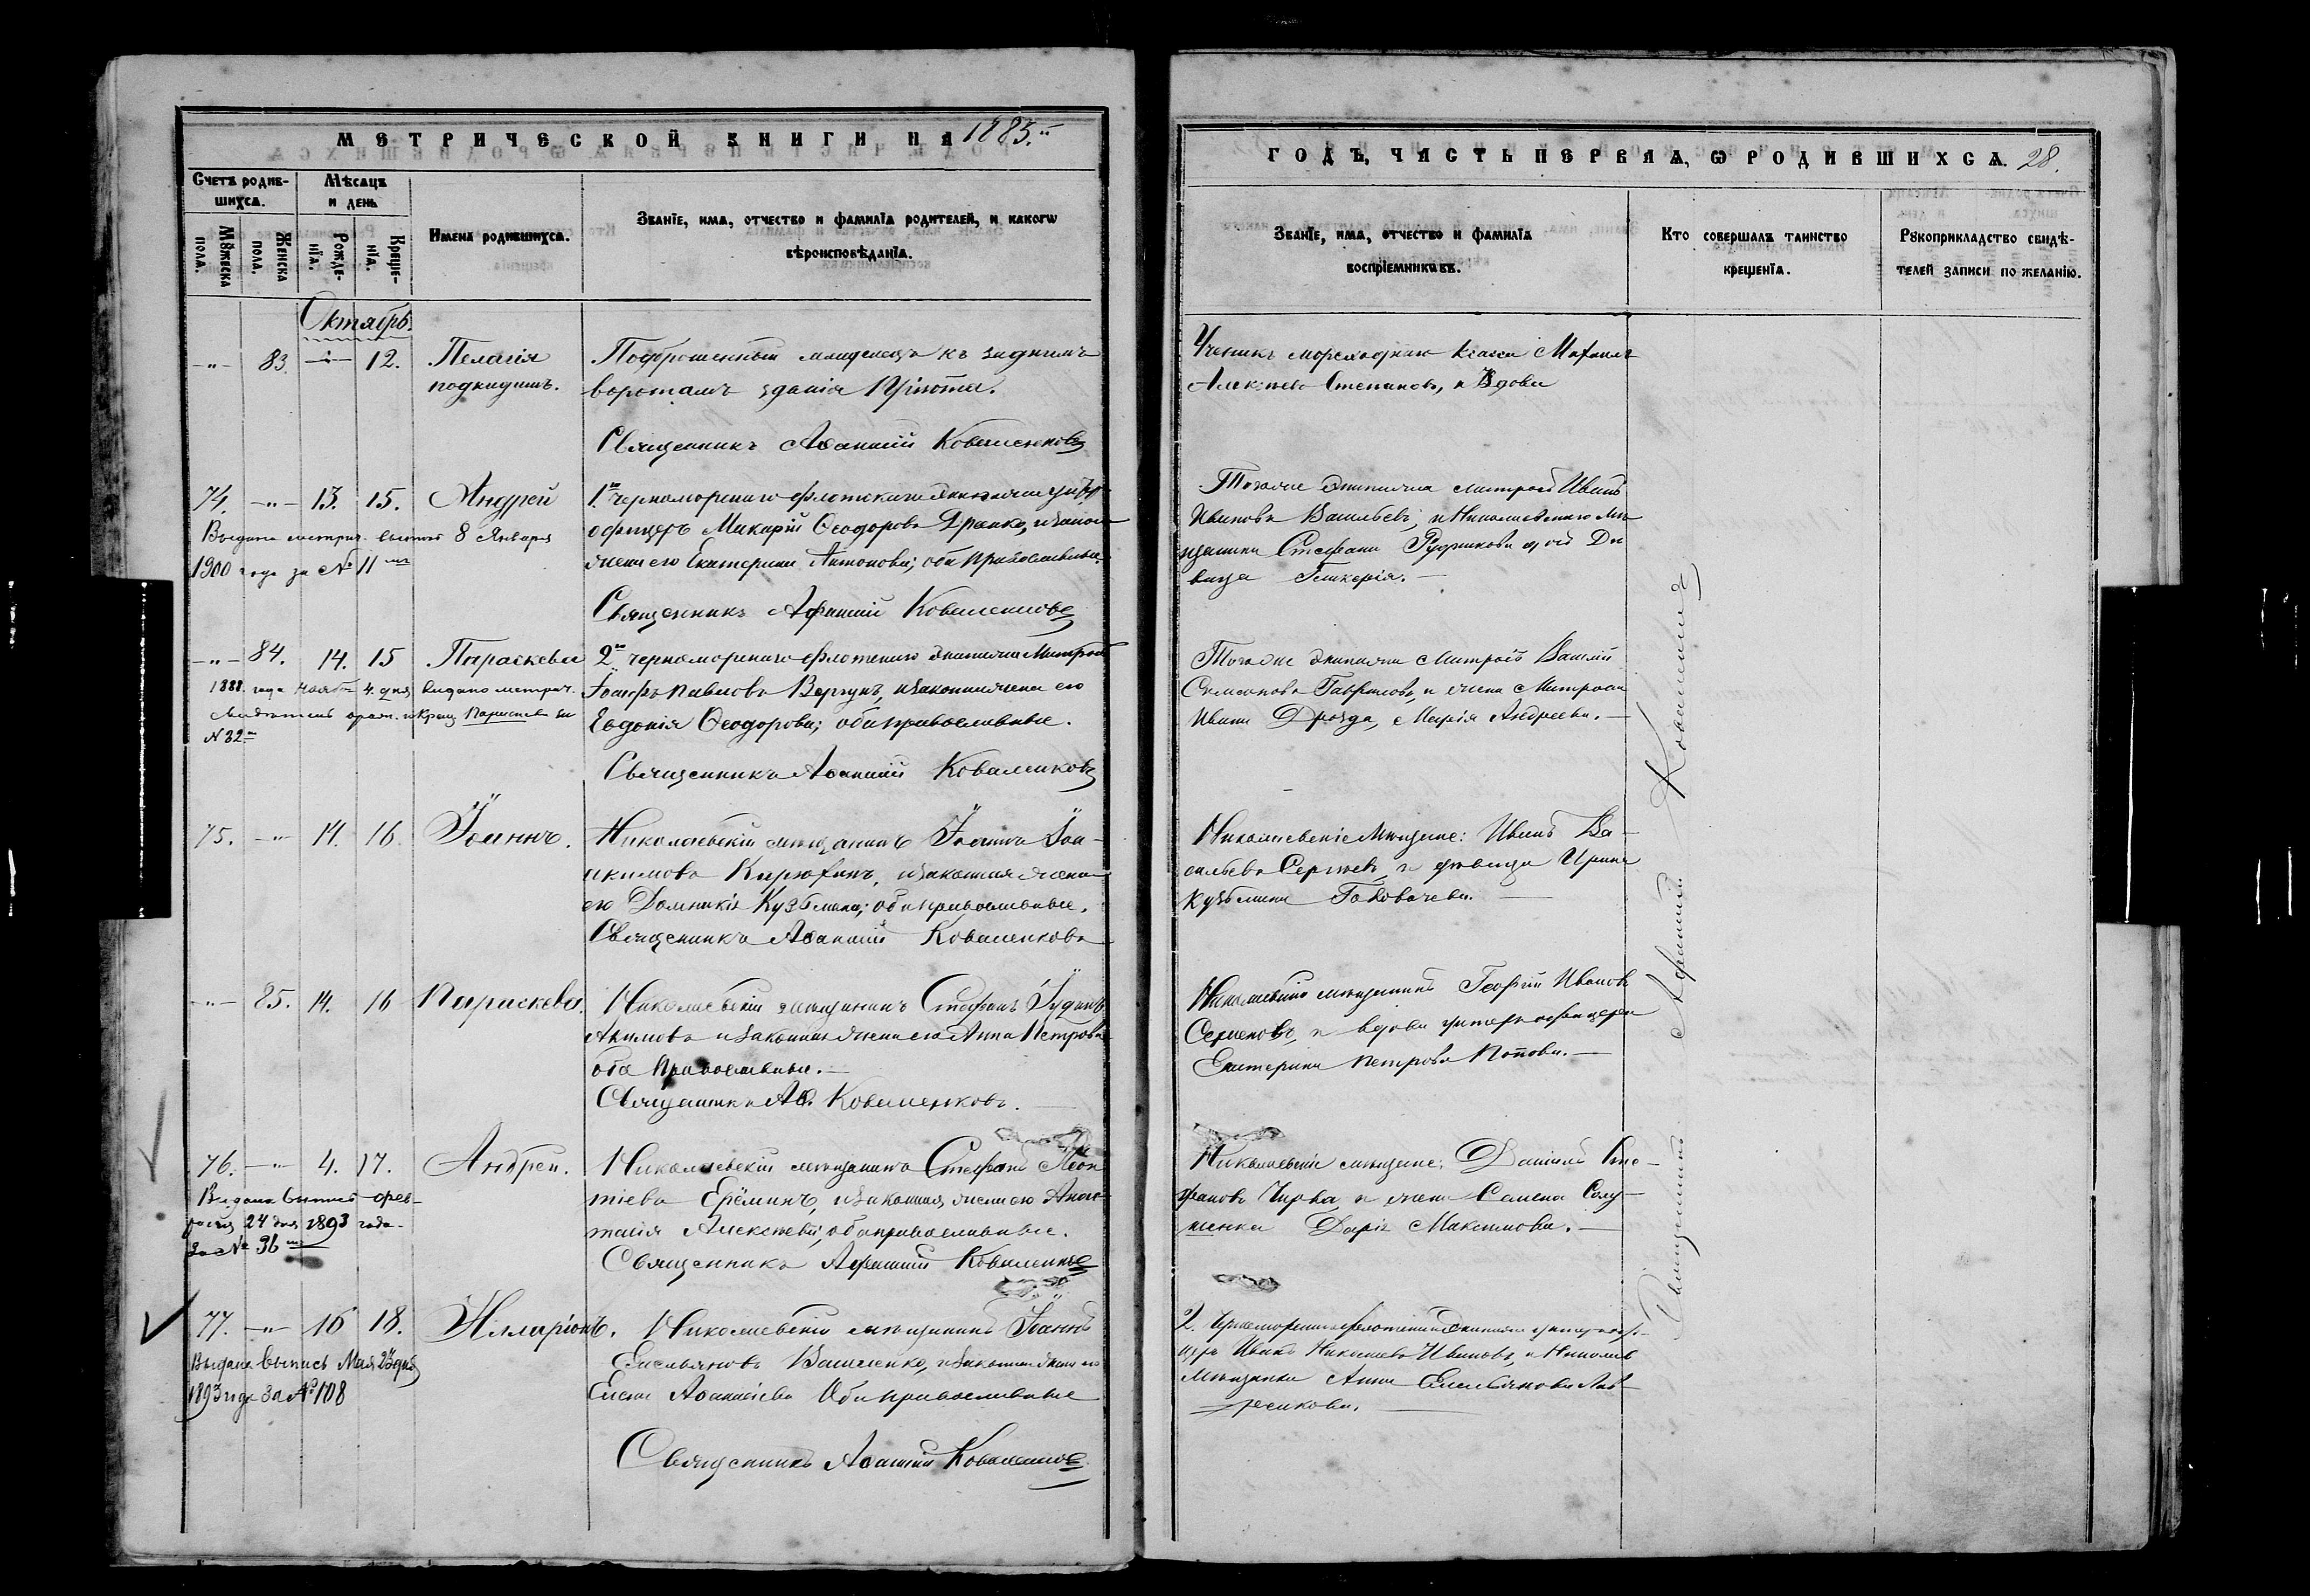 МЕТРИЧЕСКОЙ КНИГИ НА 1885.
Счетъ родив-
шихся.
Мѣсяцъ
и день
Мꙋжеска
пола.
Женска
пола.
Рожде-
нїя.
Креще-
нїя.
Имена родившихся.
Званїе, имя, отчество и фамилїя родителей, и какогѡ
вѣроисповѣданїя.
Октябрь.
-"- 83. -"- 12. Пелагія
подкидышъ.
Подброшенный младенецъ къ заднимъ
воротамъ зданія Пріюта.
Священникъ Аѳанасій Коваленковъ
74. -"- 13. 15. Андрей
Выдана метрич. выпись 8 Января
1900 года за № 11
1го черноморскаго флотскаго экипажа унтеръ
офицеръ Макарій Ѳеодоровъ Драпко, изакон
жена его Екатерина Антонова; оба православные.
Священникъ Афанасій Коваленковъ
-"- 84. 14. 15 Параскева
1888. года Нояб 4. дня выдано метрич.
№ 32
2го черноморскаго флотскаго экипажа Матросъ
Іосифъ Павловъ Вергунъ, изаконная жена его
Евдокія Ѳеодорова; оба православные.
Священникъ Аѳанасій Коваленковъ
75. -"- 14. 16. Іоаннъ.
Николаевскій мѣщанинъ Іоаннъ Іоа-
кимовъ Кирюхинъ, изаконная жена
его Домникія Кузьмина; оба православные.
Священникъ Аѳанасій Коваленковъ
-"- 85. 14. 16 Параскева.
Николаевскій мѣщанинъ Стефанъ Іудинъ
Акимовъ изаконная жена его Анна Петрова
оба Православные.—
Священникъ Аѳ. Коваленковъ.
76. -"- 4. 17. Андрей.
Выдана выпись фев-
раля 24 дня 1893 года
за № 36
Николаевскій мѣщанинъ Стефанъ Леон
тіевъ Ерёминъ, изаконная жена его Анас-
тасія Алексѣева, оба православные.
Священникъ Афанасій Коваленковъ
77. -"- 16 18. Илларіонъ.
Выдана выпись Мая 23 дня
1893 года за № 108
Николаевскій мѣщанинъ Іоаннъ
Емельяновъ Василенко, изаконная жена его
Елена Аѳанасіева Оба православные
Священникъ Аѳанасій Коваленковъ
ГОДЪ, ЧАСТЬ ПЕРВАЯ, Ѡ РОДИВШИХСЯ. 28.
Званїе, имя, отчество и фамилїя
воспрїемниковъ.
Кто совершалъ таинство
крещенїя.
Рꙋкоприкладство свидѣ-
телей записи по желанїю.
Ученикъ мореходнаго класса Михаилъ
Алексѣевъ Степановъ, и Вдова
Тогоже экипажа матросъ Иванъ
Ивановъ Васильевъ, и Николаевскаго мѣ
щанина Стефана Рудникова дочь Дѣ
вица Гликерія.—
Тогоже экипажа Матросъ Василій
Симеоновъ Гавриловъ, и жена Матроса
Ивана Дрозда, Марія Андреева.—
Николаевскіе Мѣщане: Иванъ Ва-
сильевъ Сергѣевъ, и дѣвица Ирина
Кузьмина Головачева.
Николаевскій мѣщанинъ Георгій Ивановъ
Семеновъ, и вдова унтеръ офицера
Екатерина Петрова Попова.—
Николаевскіе мѣщане: Даніилъ Сте-
фановъ Чирва, и жена Самена Солу-
шенка Дарія Максимова.—
2. Черноморскаго флотскаго экипажа унтеръ офи-
церъ Иванъ Николаевъ Ивановъ, и Николаев
Мѣщанка Анна Емельянова Лав-
рсикова.
Священникъ Афанасій Коваленковъ